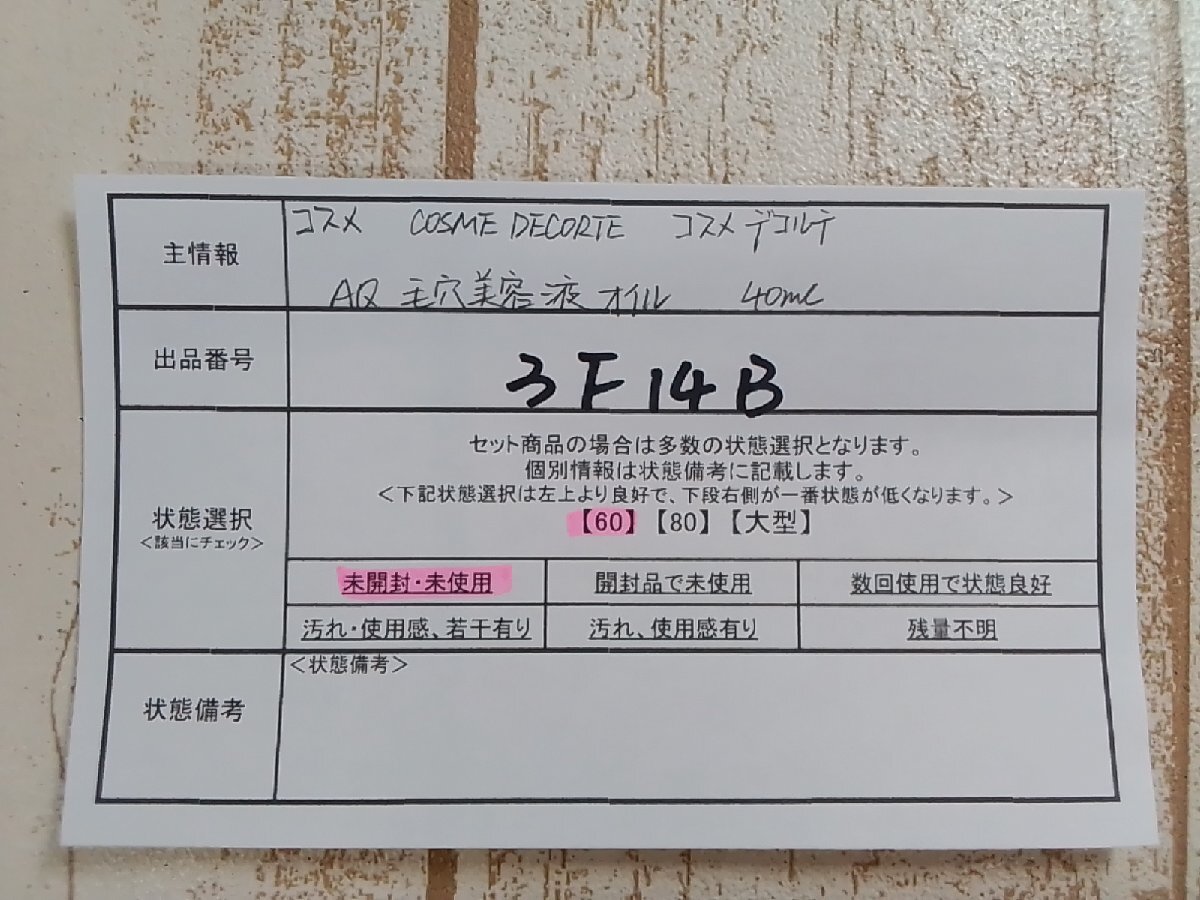 主情報
コスメ COSME DECORTE コスメデコルテ
AQ 毛穴美容液オイル 40ml
出品番号
3F14B
状態選択
<該当にチェック>
セット商品の場合は多数の状態選択となります。
個別情報は状態備考に記載します。
<下記状態選択は左上より良好で、下段右側が一番状態が低くなります。>
【60】【80】【大型】
未開封・未使用 開封品で未使用 数回使用で状態良好
汚れ・使用感、若干有り 汚れ、使用感有り 残量不明
状態備考
<状態備考>